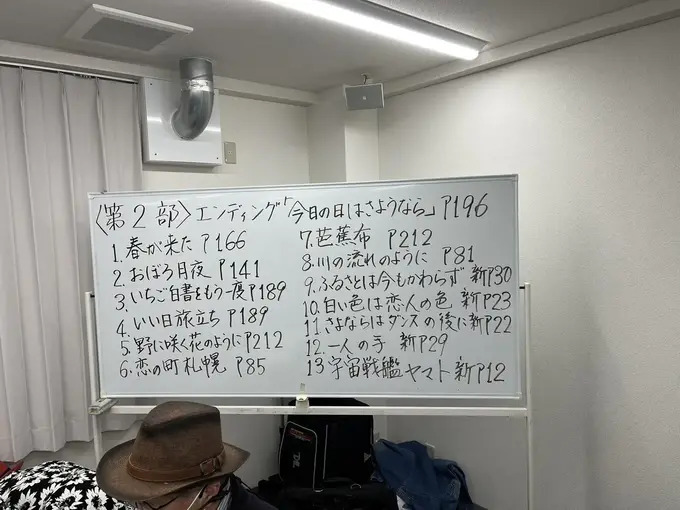 〈第2部〉エンディング「今日の日はさようなら」P196
1.春が来た P166
2.おぼろ月夜 P141
3.いちご白書をもう一度P189
4.いい日旅立ち P189
5.野に咲く花のようにP212
6.恋の町札幌 P85
7.芭蕉布 P212
8.川の流れのように P81
9.ふるさとは今もかわらず 新P30
10.白い色は恋人の色 新P23
11さよならはダンスの後に新P22
12.一人の手 新P29
13宇宙戦艦ヤマト新P12